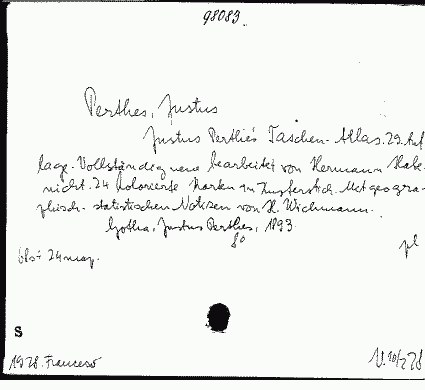 98083.
Perthes, Justus
Justus Perthes' Taschen-Atlas. 29. Auf
lage. Vollständig neu bearbeitet von Hermann Habe-
nicht. 24 kolorierte Karten in Kupferstich. Mit geogra-
phisch-statistischen Notizen von H. Wichmann.
Gotha, Justus Perthes, 1893.
8o
pl
61s + 24 map.
S
1928. Francesco